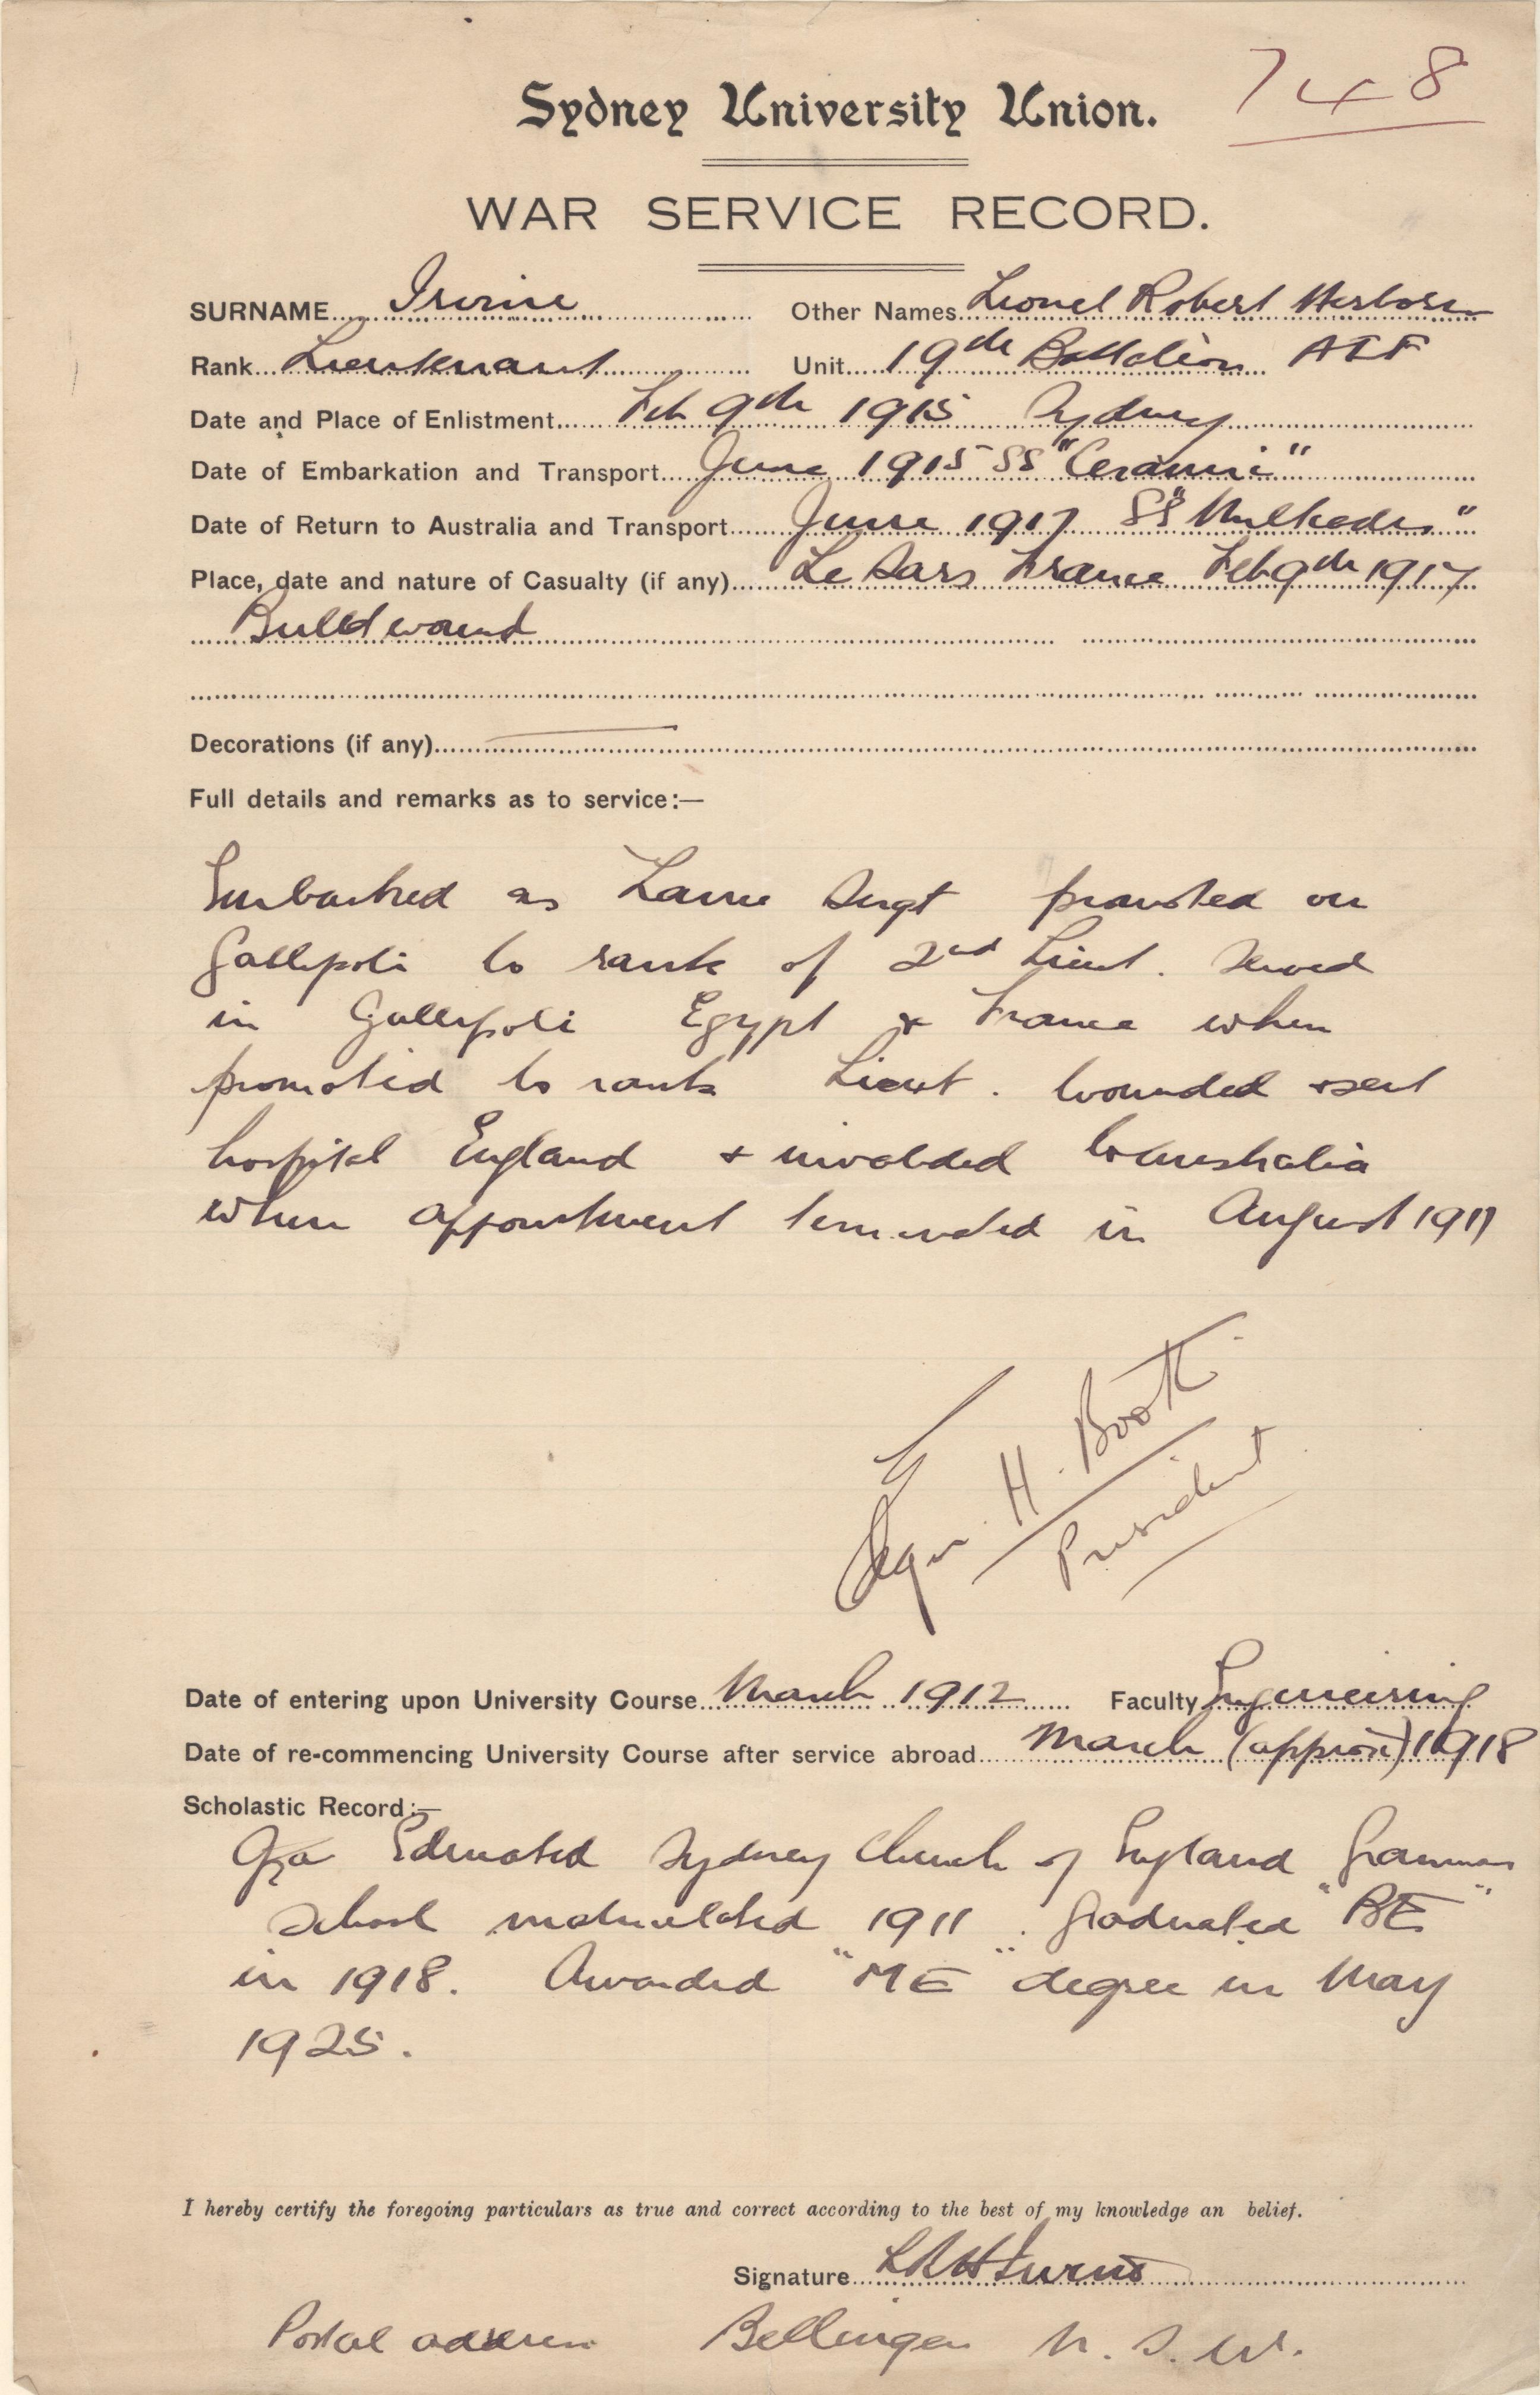 748
Sydney University Union.
WAR SERVICE RECORD.
SURNAME Irvine Other Names Lionel Robert
Rank Lieutenant Unit 19th Battalion AIF
Date and Place of Enlistment Feb 9th 1915 Sydney
Date of Embarkation and Transport June 1915 SS "Ceramic"
Date of Return to Australia and Transport June 1917 SS
Place, date and nature of Casualty (if any) Le Sars France Feb 9th 1917
Bullet wound
Decorations (if any)
Full details and remarks as to service:—
Embarked as Lance Sergt promoted on
Gallipoli to rank of 2nd Lieut. Served
in Gallipoli Egypt & France when
promoted to rank Lieut. Wounded & sent
hospital England & invalided to Australia
when appointment terminated in August 1917
H. Booth
President
Date of entering upon University Course March 1912 Faculty Engineering
Date of re-commencing University Course after service abroad March (approx) 1918
Scholastic Record:—
Educated Sydney Church of England Grammar
School matriculated 1911. Graduated "BE"
in 1918. Awarded "ME" degree in May
1925.
I hereby certify the foregoing particulars as true and correct according to the best of my knowledge an belief.
Signature LRH Irvine
Postal address Bellingen N.S.W.